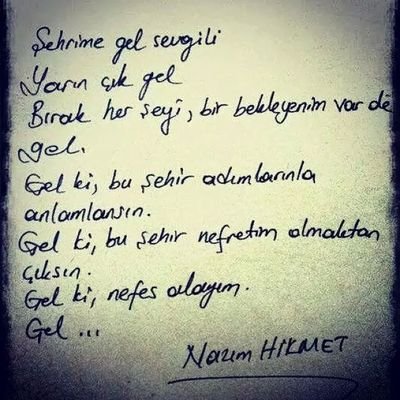 Şehrime gel sevgili
Yarın çık gel
Bırak her şeyi, bir bekleyenim var de
gel.
Gel ki, bu şehir adımlarınla
anlamlansın.
Gel ki, bu şehir nefretim olmaktan
çıksın.
Gel ki, nefes alayım.
Gel ...
Nazım HİKMET